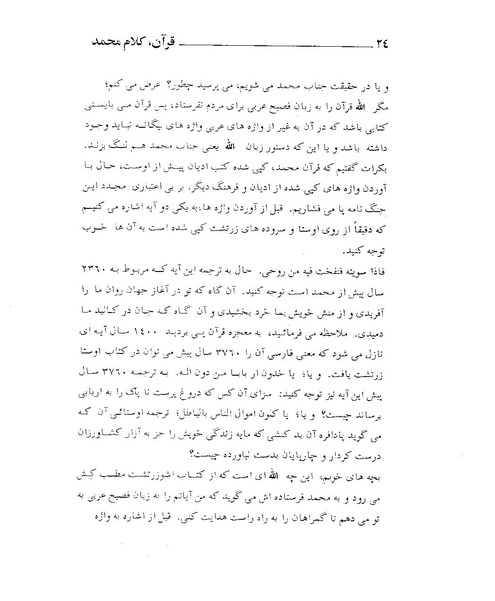 ۲٤ قرآن، کلام محمد
و یا در حقیقت جناب محمد می شویم، می پرسید چطور؟ عرض می کنم؛
مگر الله قرآن را به زبان فصیح عربی برای مردم نفرستاد، پس قرآن می بایستی
کتابی باشد که در آن به غیر از واژه های عربی واژه های بیگانه نباید وجود
داشته باشد و یا این که دستور زبان الله یعنی جناب محمد هم لنگ بزند.
بکرات گفتیم که قرآن محمد، کپی شده کتب ادیان پیش از اوست، حال با
آوردن واژه های کپی شده از ادیان و فرهنگ دیگر، بر بی اعتباری مجدد این
جنگ نامه پا می فشاریم. قبل از آوردن واژه ها، به یکی دو آیه اشاره می کنیم
که دقیقاً از روی اوستا و سروده های زرتشت کپی شده است به آن ها خوب
توجه کنید.
فاذا سویته فنفخت فیه من روحی. حال به ترجمه این آیه کـه مربوط به ۲۳۶۰
سال پیش از محمد است توجه کنید. آن گاه که تو در آغاز جهان روان ما را
آفریدی و از منش خویش بما خرد بخشیدی و آن گاه کـه جـان در کـالبد ما
دمیدی. ملاحظه می فرمائید، به معجزه قرآن پی بردید ۱٤۰۰ سال آیه ای
نازل می شود که معنی فارسی آن را ۳۷۶۰ سال پیش می توان در کتاب اوستا
زرتشت یافت. و یا؛ یا خدون ار بابا مـن دون الـه. بـه ترجمه ۳۷۶۰ سال
پیش این آیه نیز توجه کنید: سزای آن کس که دروغ پرست نا پاک را به اربابی
برساند چیست؟ و یا؛ یا کنون اموال الناس بالباطل؛ ترجمه اوستائی آن کـه
می گوید پادافره آن بد کنشی که مایه زندگی خویش را جز به آزار کشـاورزان
درست کردار و چارپایان بدست نیاورده چیست؟
بچه های خوبم، این چه الله ای است که از کتـاب اشوزرتشت مطلب کِش
می رود و به محمد فرستاده اش می گوید که من آیاتم را به زبان فصیح عربی به
تو می دهم تا گمراهان را به راه راست هدایت کنی. قبل از اشاره به واژه